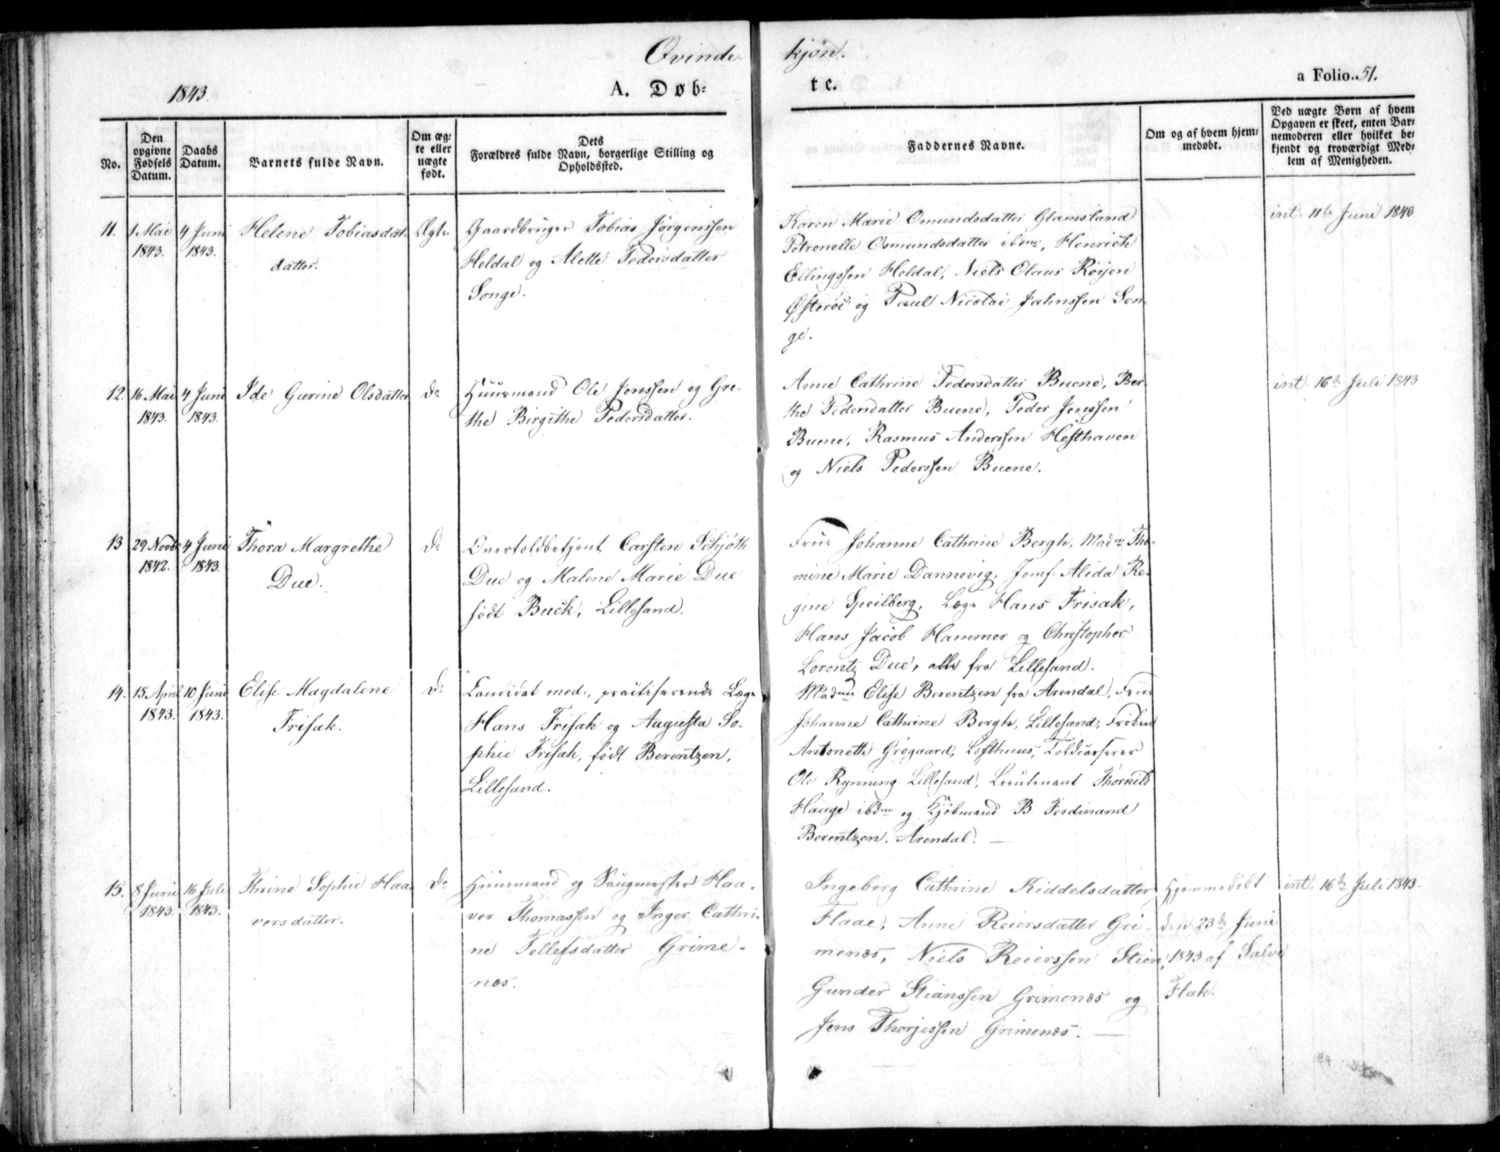 Qvinde kjøn.
1843.
A. Døb= te.
a Folio. 51.
No.
Den opgivne Fødsels Datum.
Daabs Datum.
Barnets fulde Navn.
Om ægte eller uægte født.
Dets Forældres fulde Navn, borgerlige Stilling og Opholdssted.
Faddernes Navne.
Om og af hvem hjemmedøbt.
Ved uægte Børn af hvem Opgaven er skeet, enten Barnemoderen eller hvilket bekjendt og troværdigt Medlem af Menigheden.
11. 1 Mai 1843. 4 Juni 1843.
Helene Tobiasdat
datter.
Ægte
Gaardbruger Tobias Jørgenssen
Heldal og Alette Pedersdatter
Songe.
Karen Marie Omundsdatter Glamsland
Petronelle Osmundsdatter ibdm, Henrich
Ellingssen Heldal, Niels Claus Røyen
Østerøe og Paul Nicolai Jahnssen Son
ge.
int. 11te Juni 1840
12. 16 Mai 1843. 4 Juni 1843.
Ide Gurine Olsdatter
do
Huusmand Ole Jenssen og Gre-
the Birgithe Pedersdatter.
Anne Cathrine Pedersdatter Buene, Ber-
the Pedersdatter Buene, Peder Jenssen
Buene, Rasmus Anderssen Hesthaven
og Niels Pederssen Buene.
int. 16de Juli 1843
13 29 Novbr 1842. 4 Juni 1843.
Thora Margrethe
Due.
do
Overtoldbetjent Carsten Schjøth
Due og Malene Marie Due
født Buck, Lillesand.
Frue Johanne Cathrine Bergh, Madme Tho-
mine Marie Dannevig, Jomf. Alida Re-
gine Speilberg, Læge Hans Frisak,
Hans Jacob Hammer og Christopher
Lorentz Due, alle fra Lillesand.
14. 15 April 1843. 10 Juni 1843.
Elise Magdalene
Frisak.
do
Candidat med:, practiserende Læge
Hans Frisak og Augusta So-
phie Frisak, født Berentzen,
Lillesand.
Madme Elise Berentzen fra Arendal, Frue
Johanne Cathrine Bergh, Lillesand, Frøken
Antonette Grøgaard, Lofthuus, Toldcasserer
Ole Rynning Lillesand, Lieutenant Thorkild
Hauge ibdm og Kjøbmand B Ferdinand
Berentzen, Arendal. —
15. 8 Juni 1843. 16 Juli 1843.
Thrine Sophie Haa-
versdatter.
do
Huusmand og Saugmester Haa-
ver Thomassen og Inger Cathri-
ne Tellefsdatter Grime-
næs.
Ingeborg Cathrine Kiddelsdatter
Flaae, Anne Reiersdatter Gri-
menæs, Niels Reierssen Stien,
Gunder Stianssen Grimenæs og
Jens Thorjessen Grimenæs. —
Hjemmedøbt
den 23de Juni
1843 af Salve
Flak.
int. 16de Juli 1843.